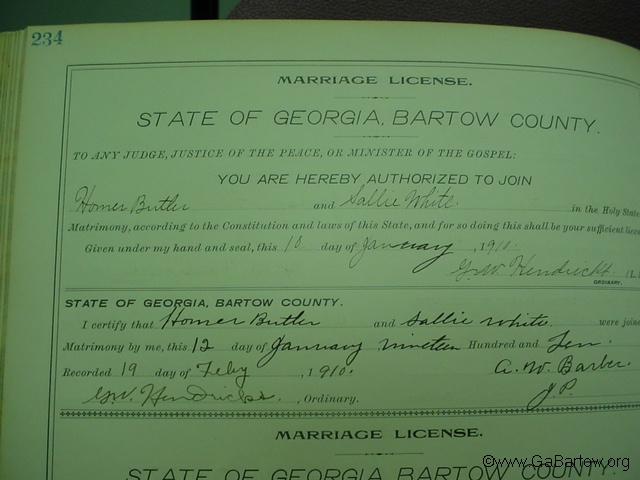 234
MARRIAGE LICENSE.
STATE OF GEORGIA, BARTOW COUNTY.
TO ANY JUDGE, JUSTICE OF THE PEACE, OR MINISTER OF THE GOSPEL:
YOU ARE HEREBY AUTHORIZED TO JOIN
Homer Butler and Sallie White. in the Holy State
Matrimony, according to the Constitution and laws of this State, and for so doing this shall be your sufficient
Given under my hand and seal, this 10 day of January, 1910.
G.W. Hendricks
ORDINARY.
STATE OF GEORGIA, BARTOW COUNTY.
I certify that Homer Butler and Sallie White. were
Matrimony by me, this 12 day of January nineteen Hundred and Ten.
Recorded 19 day of Feby, 1910. A. W. Barber.
G.W. Hendricks., Ordinary. J.P.
MARRIAGE LICENSE.
STATE OF GEORGIA BARTOW COUNTY
©www.GaBartow.org